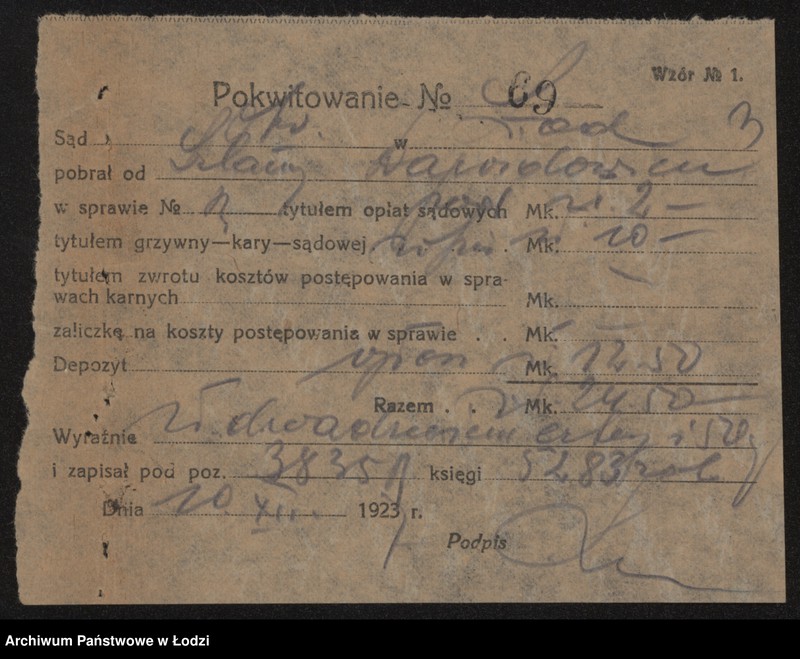 Wzór № 1.
Pokwitowanie № 69
3
Sąd w
pobrał od Dawidowicz
w sprawie № tytułem opłat sądowych Mk. zł. 2 —
tytułem grzywny—kary—sądowej . Mk. zł. 10 —
tytułem zwrotu kosztów postępowania w spra-
wach karnych Mk. —
zaliczkę na koszty postępowania w sprawie . . Mk. —
Depozyt Mk. zł 12.50
Razem . . Mk. zł 24.50
Wyraźnie zł. dwadzieścia cztery i 50
i zapisał pod poz. 3835 księgi 5283
Dnia 10 XII. 1923 r.
Podpis
Archiwum Państwowe w Łodzi